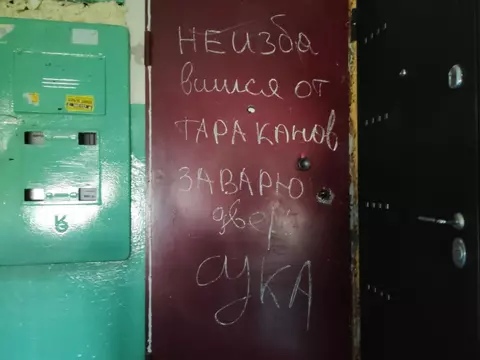 НЕИЗБА
вишся от
ТАРАКАНОВ
ЗАВАРЮ
двер
СУКА